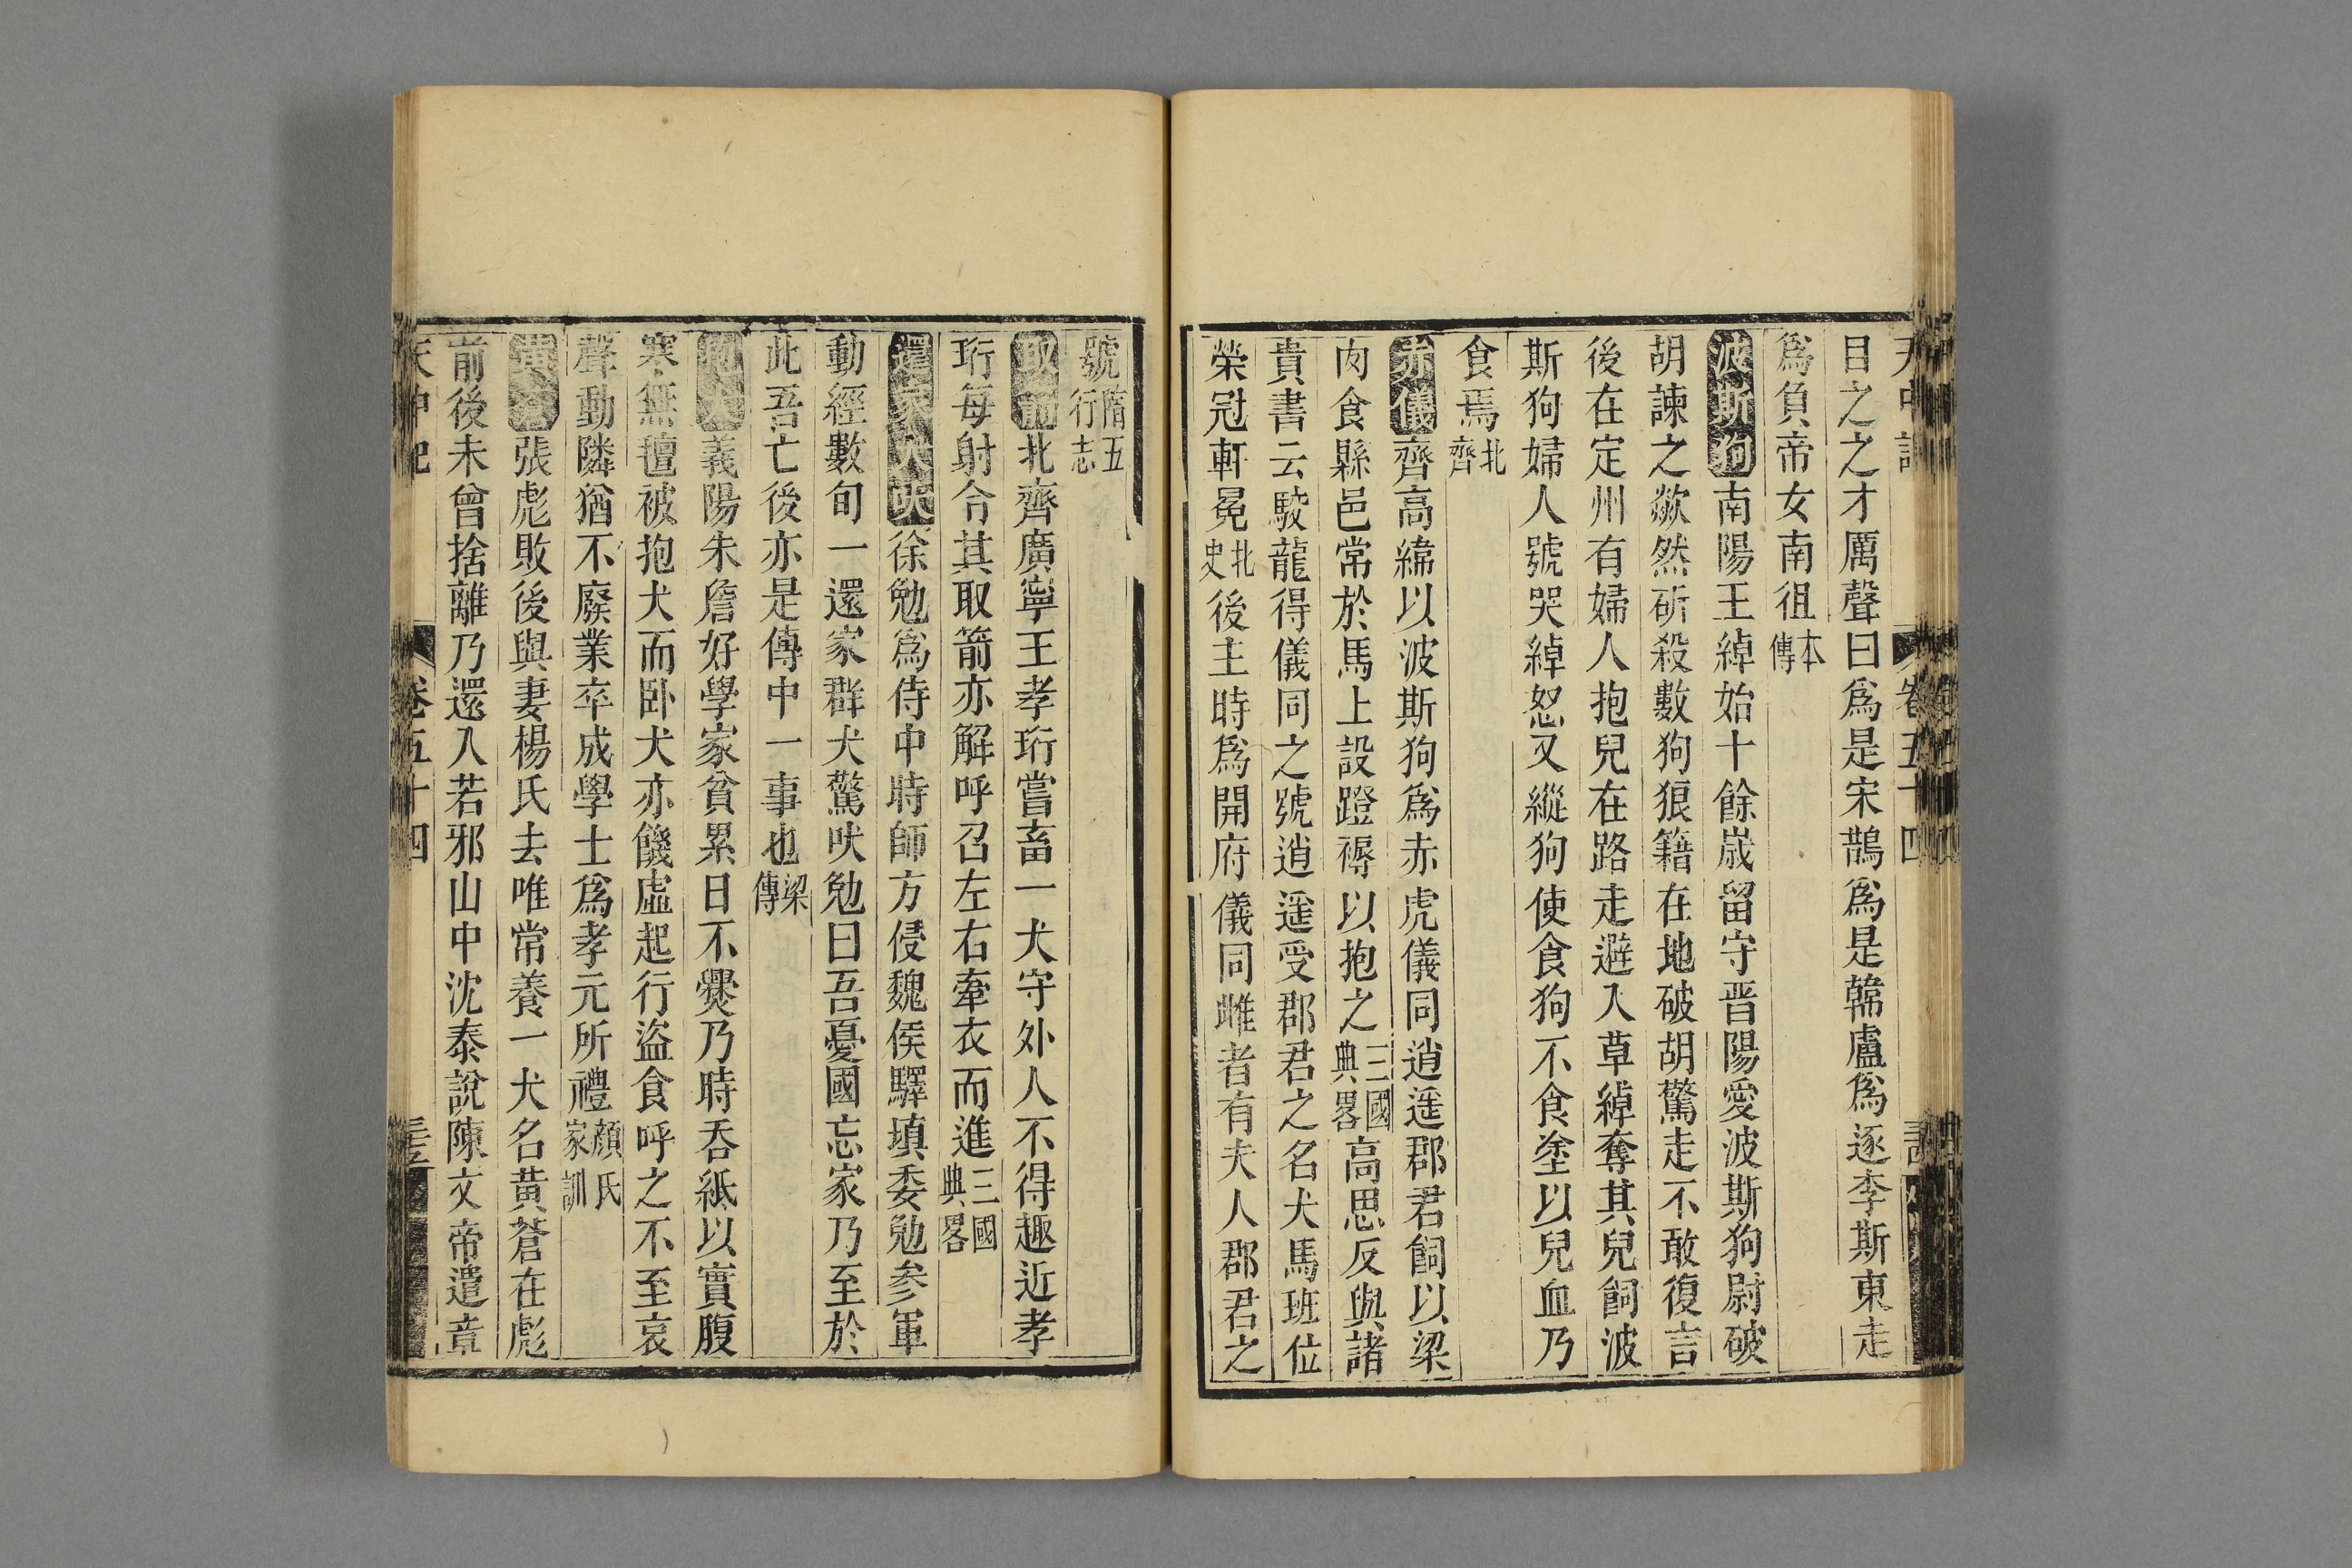 目之之才厲聲曰爲是宋鵲爲是韓盧爲逐李斯東走
爲負帝女南徂本傳
波斯狗南陽王綽始十餘歲留守晋陽愛波斯狗尉破
胡諫之欻然斫殺數狗狼籍在地破胡驚走不敢復言
後在定州有婦人抱兒在路走避入草綽奪其兒飼波
斯狗婦人號哭綽怒又縱狗使食狗不食塗以兒血乃
食焉北齊
赤儀齊高緯以波斯狗爲赤虎儀同逍遥郡君飼以梁
肉食縣邑常於馬上設蹬褥以抱之三國典畧高思反與諸
貴書云駮龍得儀同之號逍遥受郡君之名犬馬班位
榮冠軒冕北史後主時爲開府儀同雌者有夫人郡君之
號隋五行志
取箭北齊廣寧王孝珩嘗畜一犬守外人不得趣近孝
珩每射令其取箭亦解呼召左右牽衣而進三國典畧
還家犬吠徐勉爲侍中時師方侵魏侯驛填委勉參軍
動經數旬一還家群犬驚吠勉曰吾憂國忘家乃至於
此吾亡後亦是傳中一事也梁傳
抱犬義陽朱詹好學家貧累日不爨乃時吞紙以實腹
寒無氊被抱犬而卧犬亦饑虛起行盜食呼之不至哀
聲動隣猶不廢業卒成學士爲孝元所禮顏氏家訓
黃蒼張彪敗後與妻楊氏去唯常養一犬名黃蒼在彪
前後未曾捨離乃還入若邪山中沈泰說陳文帝遣章
天中記 卷五十四